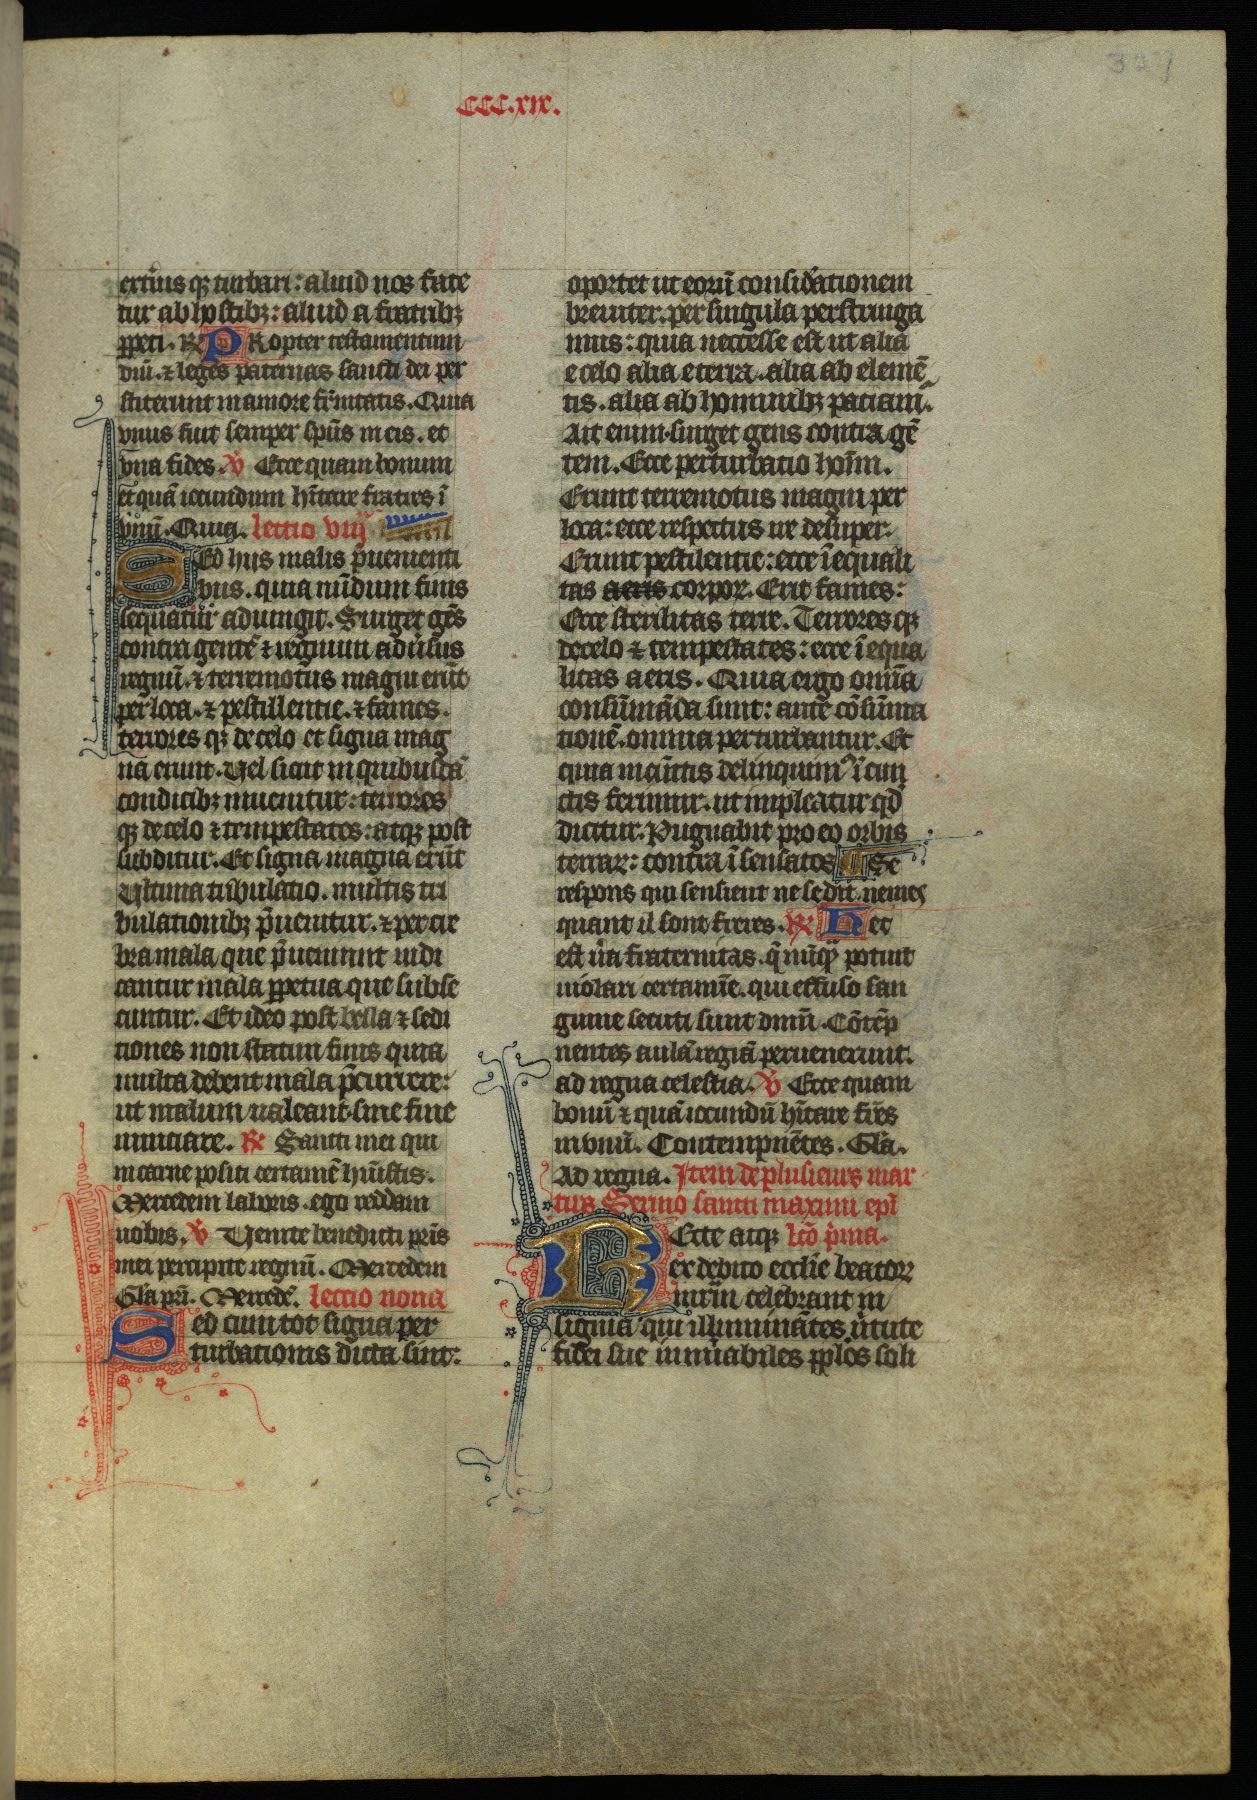 CCC.xix.
327
ext̾ius qꝫ turbari: aliud nos fate
tur ab hostibꝫ: aliud a fratribꝫ
ꝑpeti. ℟ PRopter testamentum
dn̄i. ⁊ leges paternas sancti dei per
stiterunt in amore fr̄nitatis. Quia
vnus fuit semper sp̄us in eis. et
vna fides. ℣ Ecce quam bonum
et quā iocundum hītare fratres ī
vnū. Quia. lectio viij
SEd hijs malis p̄uenienti
bus. quia nūdum finis
sequatur adiungit. Surget gēs
contra gentē ⁊ regnum aduĺsus
regnū. ⁊ terremotus magni erūt
per loca. ⁊ pestillentie. ⁊ fames.
terrores qꝫ de celo et signa mag
na erunt. Vel sicut in quibusdā
condicibꝫ inuenitur: terrores
qꝫ de celo ⁊ tempestates: atqꝫ post
subditur. Et signa magna erūt
Vltima tribulatio. multis tri
bulationibꝫ p̄uenitur. ⁊ per cre
bra mala que p̄ueniunt indi
cantur mala ꝑpetua que subse
cuntur. Et ideo post bella ⁊ sedi
tiones non statim finis quia
multa debent mala p̄currere:
ut malum ualeant sine fine
nunciare. ℟ Sancti mei qui
in carne positi certamē hr̄uistis.
Mercedem laboris. ego reddam
uobis. ℣ Venite benedicti pr̄is
mei percipite regnū. Mercedem
Gl̄a pr̄i. Mercedē. lectio nona
Sed cum tot signa per
turbationis dicta sint:
oportet ut eorū consid̾ationem
breuiter. per singula perstringa
mus: quia necesse est ut alia
e celo alia e terra. alia ab elemē
tis. alia ab hominibꝫ patiam̄.
Ait enim. surget gens contra gē
tem. Ecce perturbatio hoīm.
Erunt terremotus magni per
loca: ecce respectus ire desuper.
Erunt pestilentie: ecce īequali
tas aeris corpoꝝ. Erit fames:
Ecce sterilitas terre. Terrores qꝫ
de celo ⁊ tempestates: ecce īequa
litas aeris. Quia ergo omīa
consūmāda sunt: ante cōsūma
tionē. omnia perturbantur. Et
quia in cūctis delinquim̾ ī cun
ctis ferimur. ut impleatur qd̄
dicitur. Pugnabit pro eo orbis
terraꝝ: contra īsensatos Ce
respons qui sensieut ne se dit. nemes
quant il sont freres. ℟ Hec
est ūa fraternitas. q̄ nūqͣꝫ potuit
uiolari certamīe. qui effuso san
guine secuti sunt dn̄m. Cōtēp
nentes aulā regiā peruenerunt.
ad regna celestia. ℣ Ecce quam
bonū ⁊ quā iocundū hītare fr̄es
in vnū. Contempnētes. Gl̄a.
Ad regna. Item de plusieurs mar
tirs Sermo sancti maximi ep̄i
REcte atqꝫ lc̄o p̾ma.
ex debito eccl̄ie beatoꝝ
mr̄ūm celebrant in
signia qui illuminātes ūtute
fidei sue innūabiles pp̄los soli